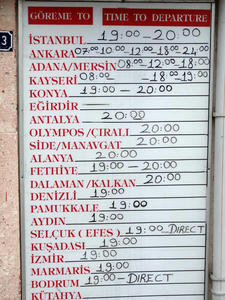 3
GÖREME TO TIME TO DEPARTURE
İSTANBUL 19:00 - 20:00
ANKARA 07:00 10:00 - 12:00 - 18:00 - 24:00
ADANA/MERSİN 08:00 - 12:00 - 18:00
KAYSERİ 08:00 - 18:00 - 19:00
KONYA 19:00 - 20:00
EĞİRDİR
ANTALYA 20:00
OLYMPOS /ÇIRALI 20:00
SİDE/MANAVGAT 20:00
ALANYA 20:00
FETHİYE 19:00 - 20:00
DALAMAN /KALKAN 20:00
DENİZLİ 19:00
PAMUKKALE 19:00
AYDIN 19:00
SELÇUK ( EFES ) 19:00 - DIRECT
KUŞADASI 19:00
İZMİR 19:00
MARMARİS 19:00
BODRUM 19:00 - DIRECT
KÜTAHYA